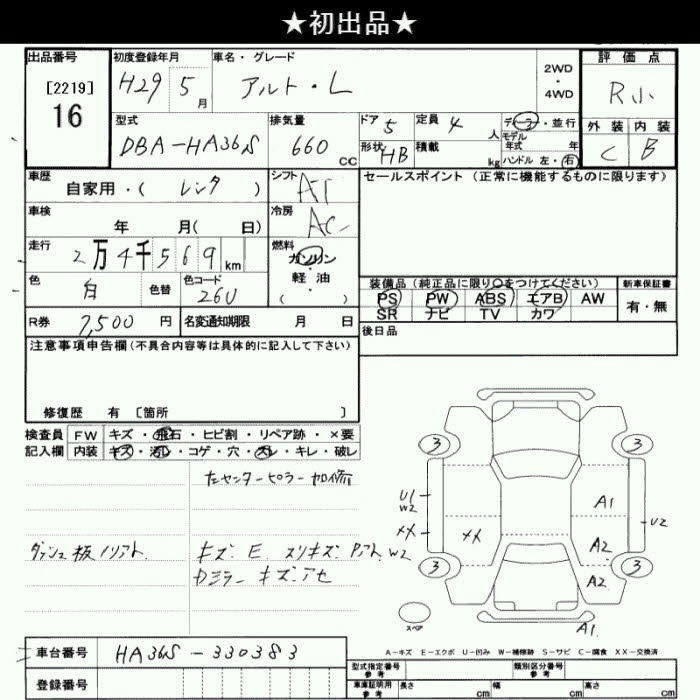 ★初出品★
出品番号 初度登録年月 車名・グレード 評価点
[2219] H29 5月 アルト・L 2WD・4WD R小
16
型式 排気量 ドア 5 定員 4人 ディーラー・並行 外装 内装
DBA-HA36S 660cc 形状 HB 積載 kg モデル年式 年 C B
ハンドル 左・右
車歴 シフト セールスポイント(正常に機能するものに限ります)
自家用・(レンタ) AT
車検 冷房
年 月(日) AC
走行 燃料
2万4千569km ガソリン・軽油
色 色替 色コード ( )
白 26U
装備品(純正品に限り○をつけてください) 新車保証書
PS PW ABS エアB AW 有・無
SR ナビ TV カワ
R券 7,500円 名変通知期限 月 日
後日品
注意事項申告欄(不具合内容等は具体的に記入して下さい)
修復歴 有 〔箇所 〕
検査員 FW キズ・飛石・ヒビ割・リペア跡・×要
記入欄 内装 キズ・汚レ・コゲ・穴・スレ・キレ・破レ
左センターピラー加修
ダッシュ板ノリアト キズ・E スリキズ Pアト W2
Dミラー キズ・アセ
3 3
U1
W2
XX XX
A1
U2
A2
3 A2 3
スペア
A1
A-キズ E-エクボ U-凹み W-補修跡 S-サビ C-腐食 XX-交換済
車台番号 HA36S-330383
登録番号
型式指定番号 参考 類別区分番号 参考
車庫証明用 参考 長さ cm 幅 cm 高さ cm